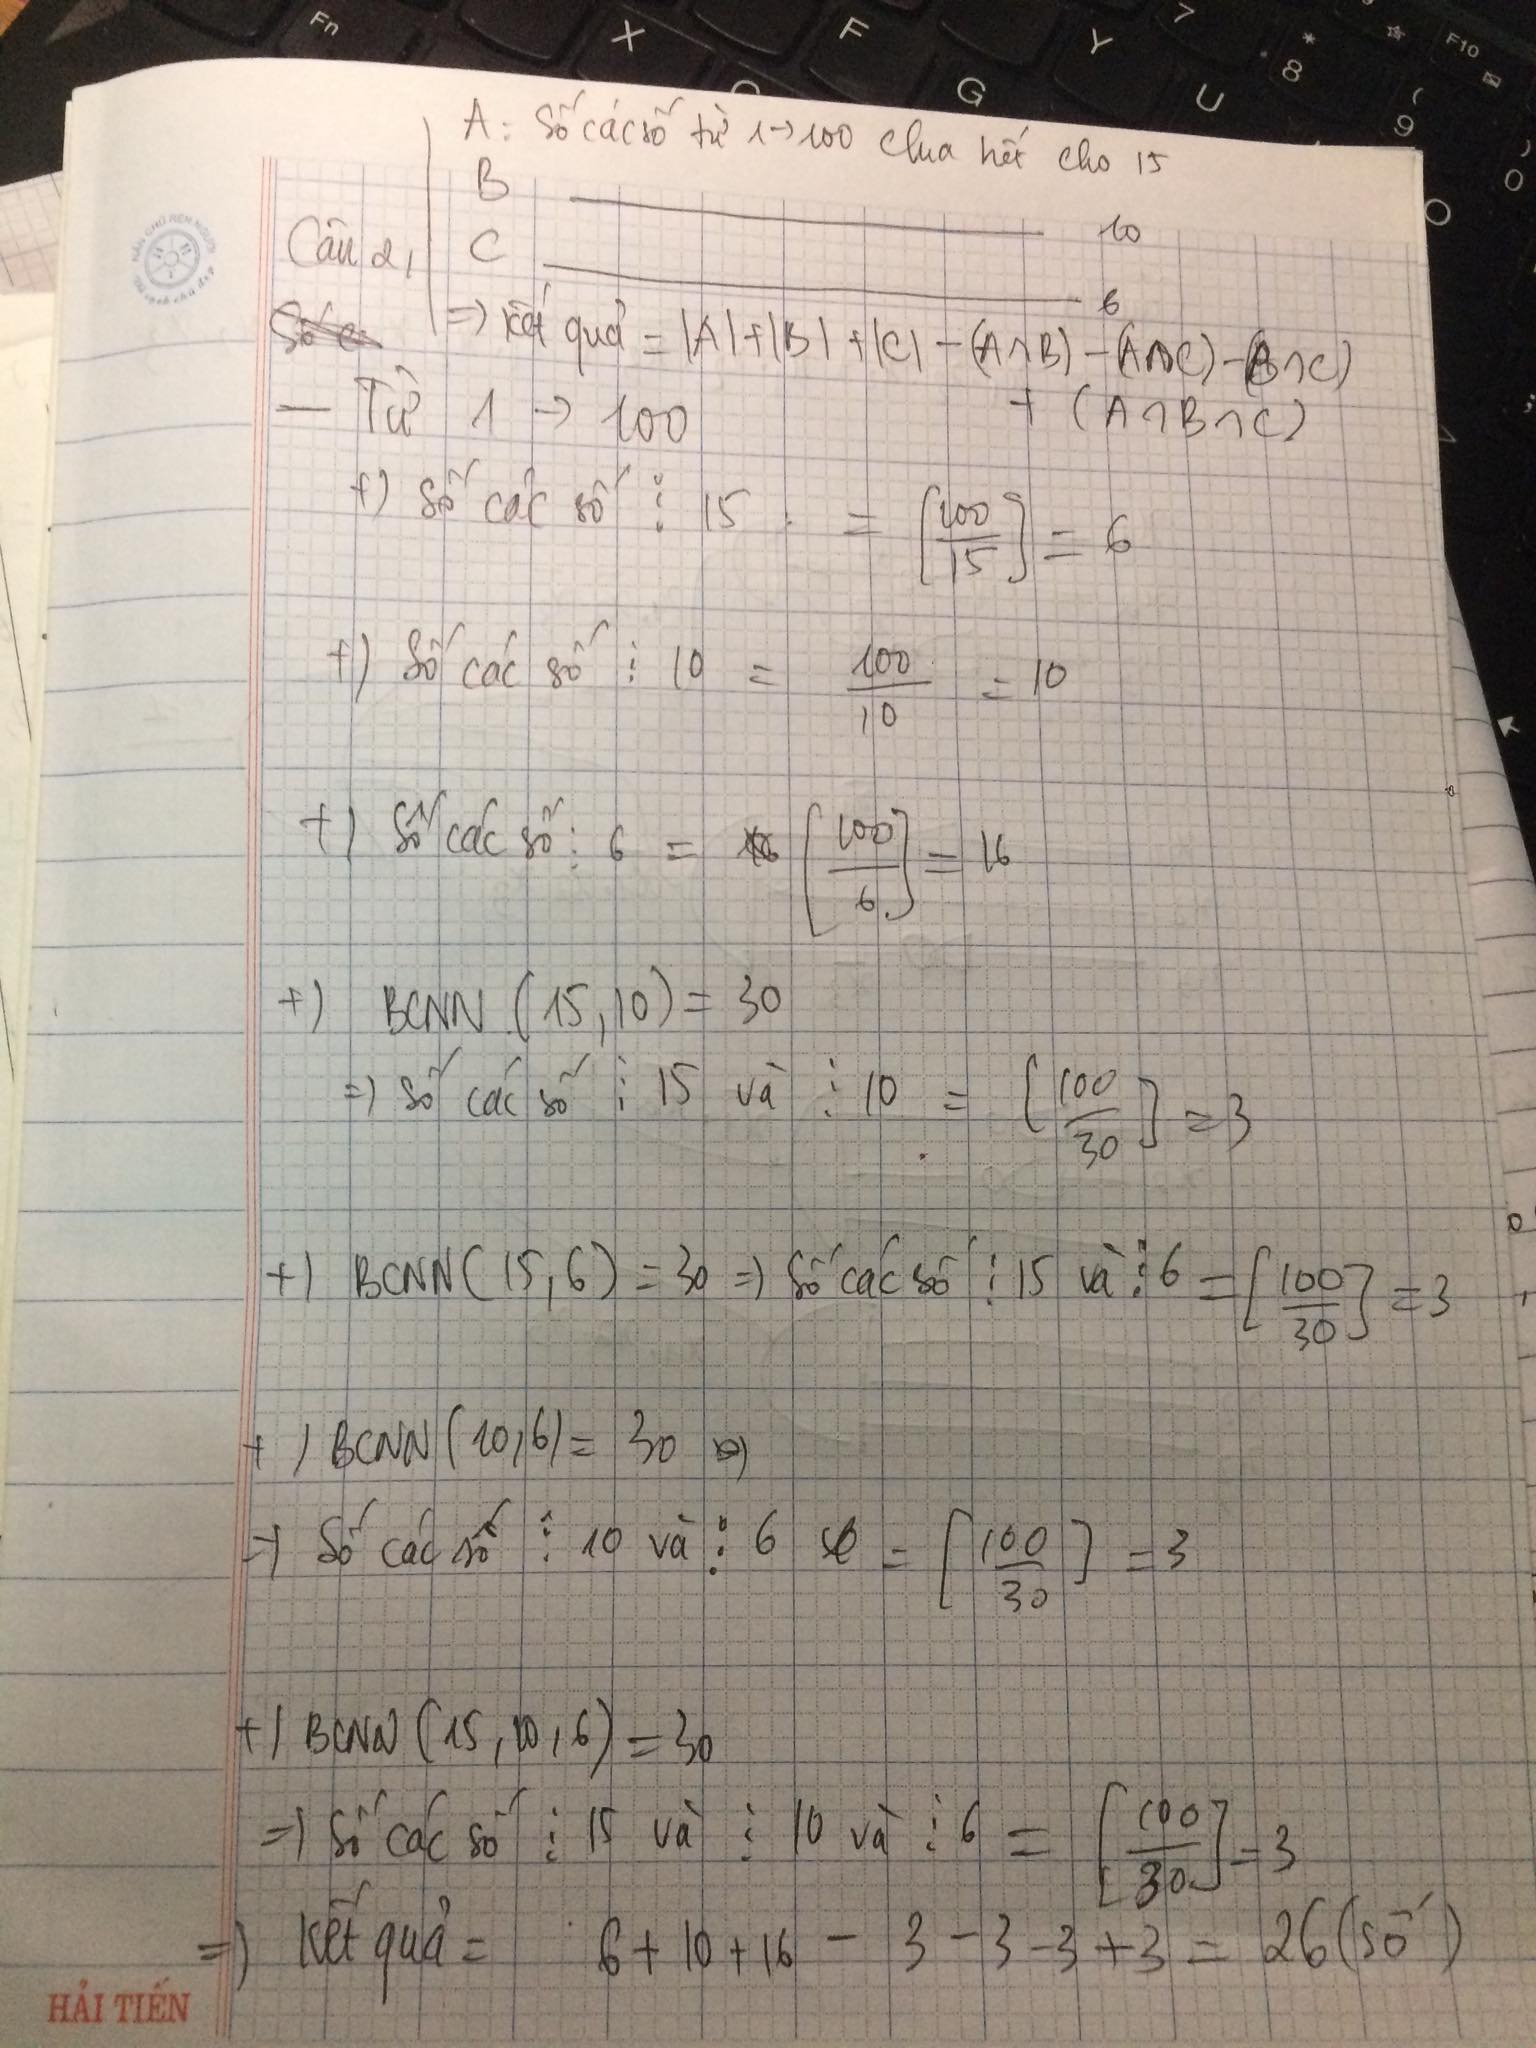 Fn
X
F
G
Y
7
U
*
8
F10
9
0
O
A: Số các số từ 1→100 chia hết cho 15
B ——— 10
Câu 2, C ——— 6
=> kết quả = |A|+|B|+|C| - (A∩B) - (A∩C) - (B∩C)
+ (A∩B∩C)
- Từ 1 → 100
+) Số các số ⋮ 15 = [100/15] = 6
+) Số các số ⋮ 10 = 100/10 = 10
+) Số các số ⋮ 6 = [100/6] = 16
+) BCNN (15,10) = 30
=) Số các số ⋮ 15 và ⋮ 10 = [100/30] = 3
+) BCNN(15,6) = 30 =) Số các số ⋮ 15 và ⋮ 6 = [100/30] = 3
+) BCNN(10,6) = 30
=) Số các số ⋮ 10 và ⋮ 6 = [100/30] = 3
+) BCNN(15,10,6) = 30
=) Số các số ⋮ 15 và ⋮ 10 và ⋮ 6 = [100/30] = 3
=) Kết quả = 6+10+16 - 3 - 3 - 3 + 3 = 26 (số)
HẢI TIẾN